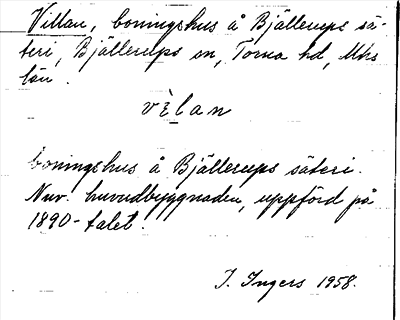 Villan, boningshus å Bjällerups sä-
teri, Bjällerups sn, Torna hd, Mhs
län.
vìlan
boningshus å Bjällerups säteri.
Nuv. huvudbyggnaden, uppförd på
1890-talet.
I. Ingers 1958.